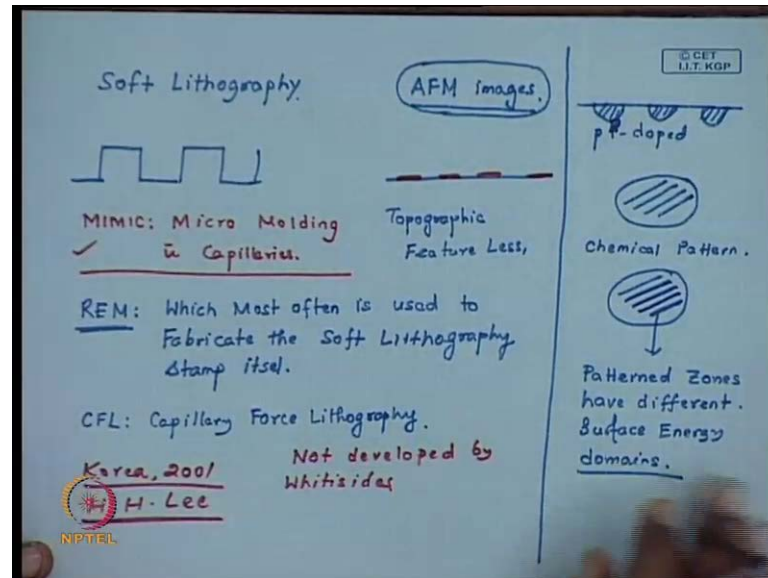 Soft Lithography.
AFM images.
MIMIC: Micro Molding
in Capillaries.
Topographic
Feature Less,
REM: Which Most often is used to
Fabricate the Soft Lithography
Stamp itsel.
CFL: Capillary Force Lithography.
Korea, 2001
H. H. Lee
Not developed by
Whitisides
© CET
I.I.T. KGP
p+-doped
Chemical Pattern.
Patterned Zones
have different.
Surface Energy
domains.
NPTEL